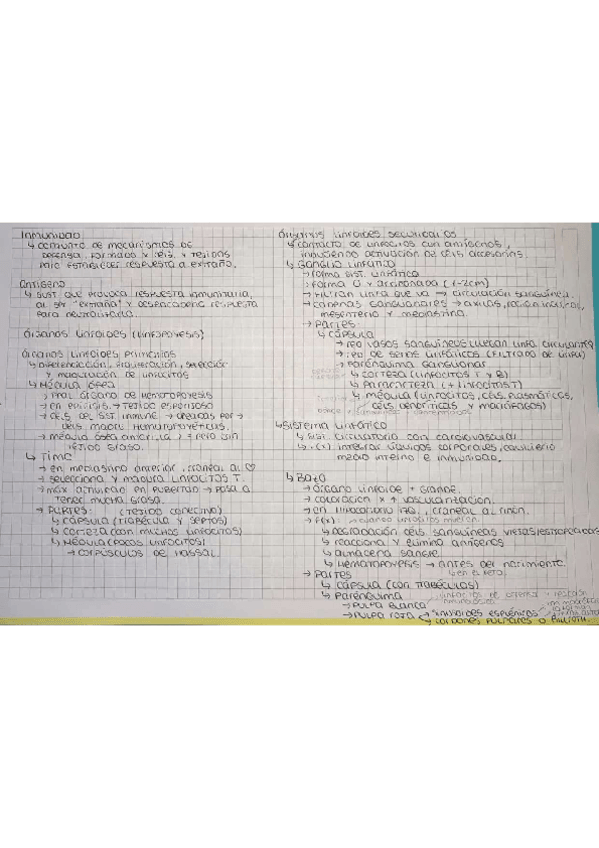 Inmunidad
↳ conjunto de mecanismos de
defensa, formado x céls y tejidos
para establecer respuesta a extraño.
Antígeno
↳ sust que provoca respuesta inmunitaria,
al ser "extraña" y desencadena respuesta
para neutralizarla.
Órganos linfoides (linfopoyesis)
Órganos linfoides primarios
↳ diferenciación, proliferación, selección
y maduración de linfocitos
↳ Médula ósea
→ ppal órgano de hematopoyesis
→ en epífisis → tejido esponjoso
→ céls del sist inmune → creadas por →
céls madre hematopoyéticas.
→ médula ósea amarilla → relleno con
tejido graso.
↳ Timo
→ en mediastino anterior, craneal al ♡
→ selecciona y madura linfocitos T.
→ máx actividad en pubertad → pasa a
tener mucha grasa.
→ Partes: (tejido conectivo)
↳ cápsula (trabécula y septos)
↳ corteza (con muchos linfocitos)
↳ médula (pocos linfocitos)
→ corpúsculos de Hassal.
Órganos linfoides secundarios
↳ contacto de linfocitos con antígenos,
induciendo actuación de céls accesorias.
↳ Ganglio linfático
→ forma sist. linfático
→ forma O y arriñonada (1-2cm)
→ filtran linfa que va → circulación sanguínea.
→ cadenas ganglionares → axilas,
mesenterio y mediastino.
→ Partes:
↳ cápsula
→ red vasos sanguíneos
→ red de senos linfáticos (filtrado de linfa)
→ parénquima ganglionar
↳ corteza (linfocitos T y B)
↳ paracorteza (+ linfocitos T)
↳ médula (linfocitos, céls plasmáticas,
céls dendríticas y macrófagos)
↳ Sistema linfático
↳ sist. circulatorio con cardiovascular
↳ f(x) integrar líquidos corporales, equilibrio
medio interno e inmunidad.
↳ Bazo
→ órgano linfoide + grande.
→ coloración x + vascularización.
→ en hipocondrio izq, craneal al riñón.
→ f(x):
↳ degradación céls sanguíneas viejas/estropeadas
↳ reacciona y elimina antígenos
↳ almacena sangre
↳ hematopoyesis → antes del nacimiento.
→ Partes
↳ cápsula (con trabéculas)
↳ parénquima
→ pulpa blanca
→ pulpa roja
sinusoides esplénicos
cordones pulpares o Billroth.